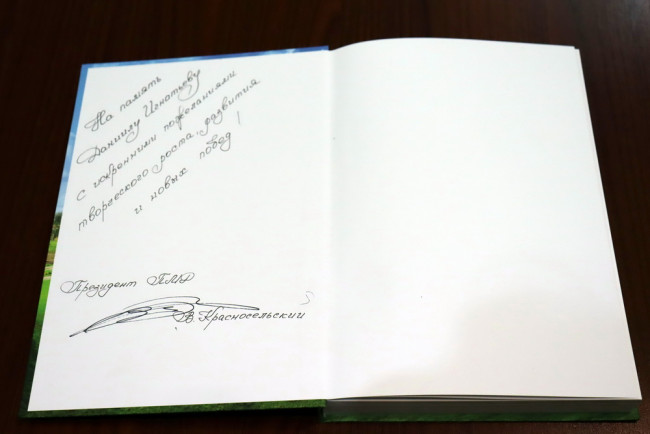 На память
Даниилу Игнатьеву
с искренними пожеланиями
творческого роста, развития
и новых побед!
Президент ПМР
В. Красносельский